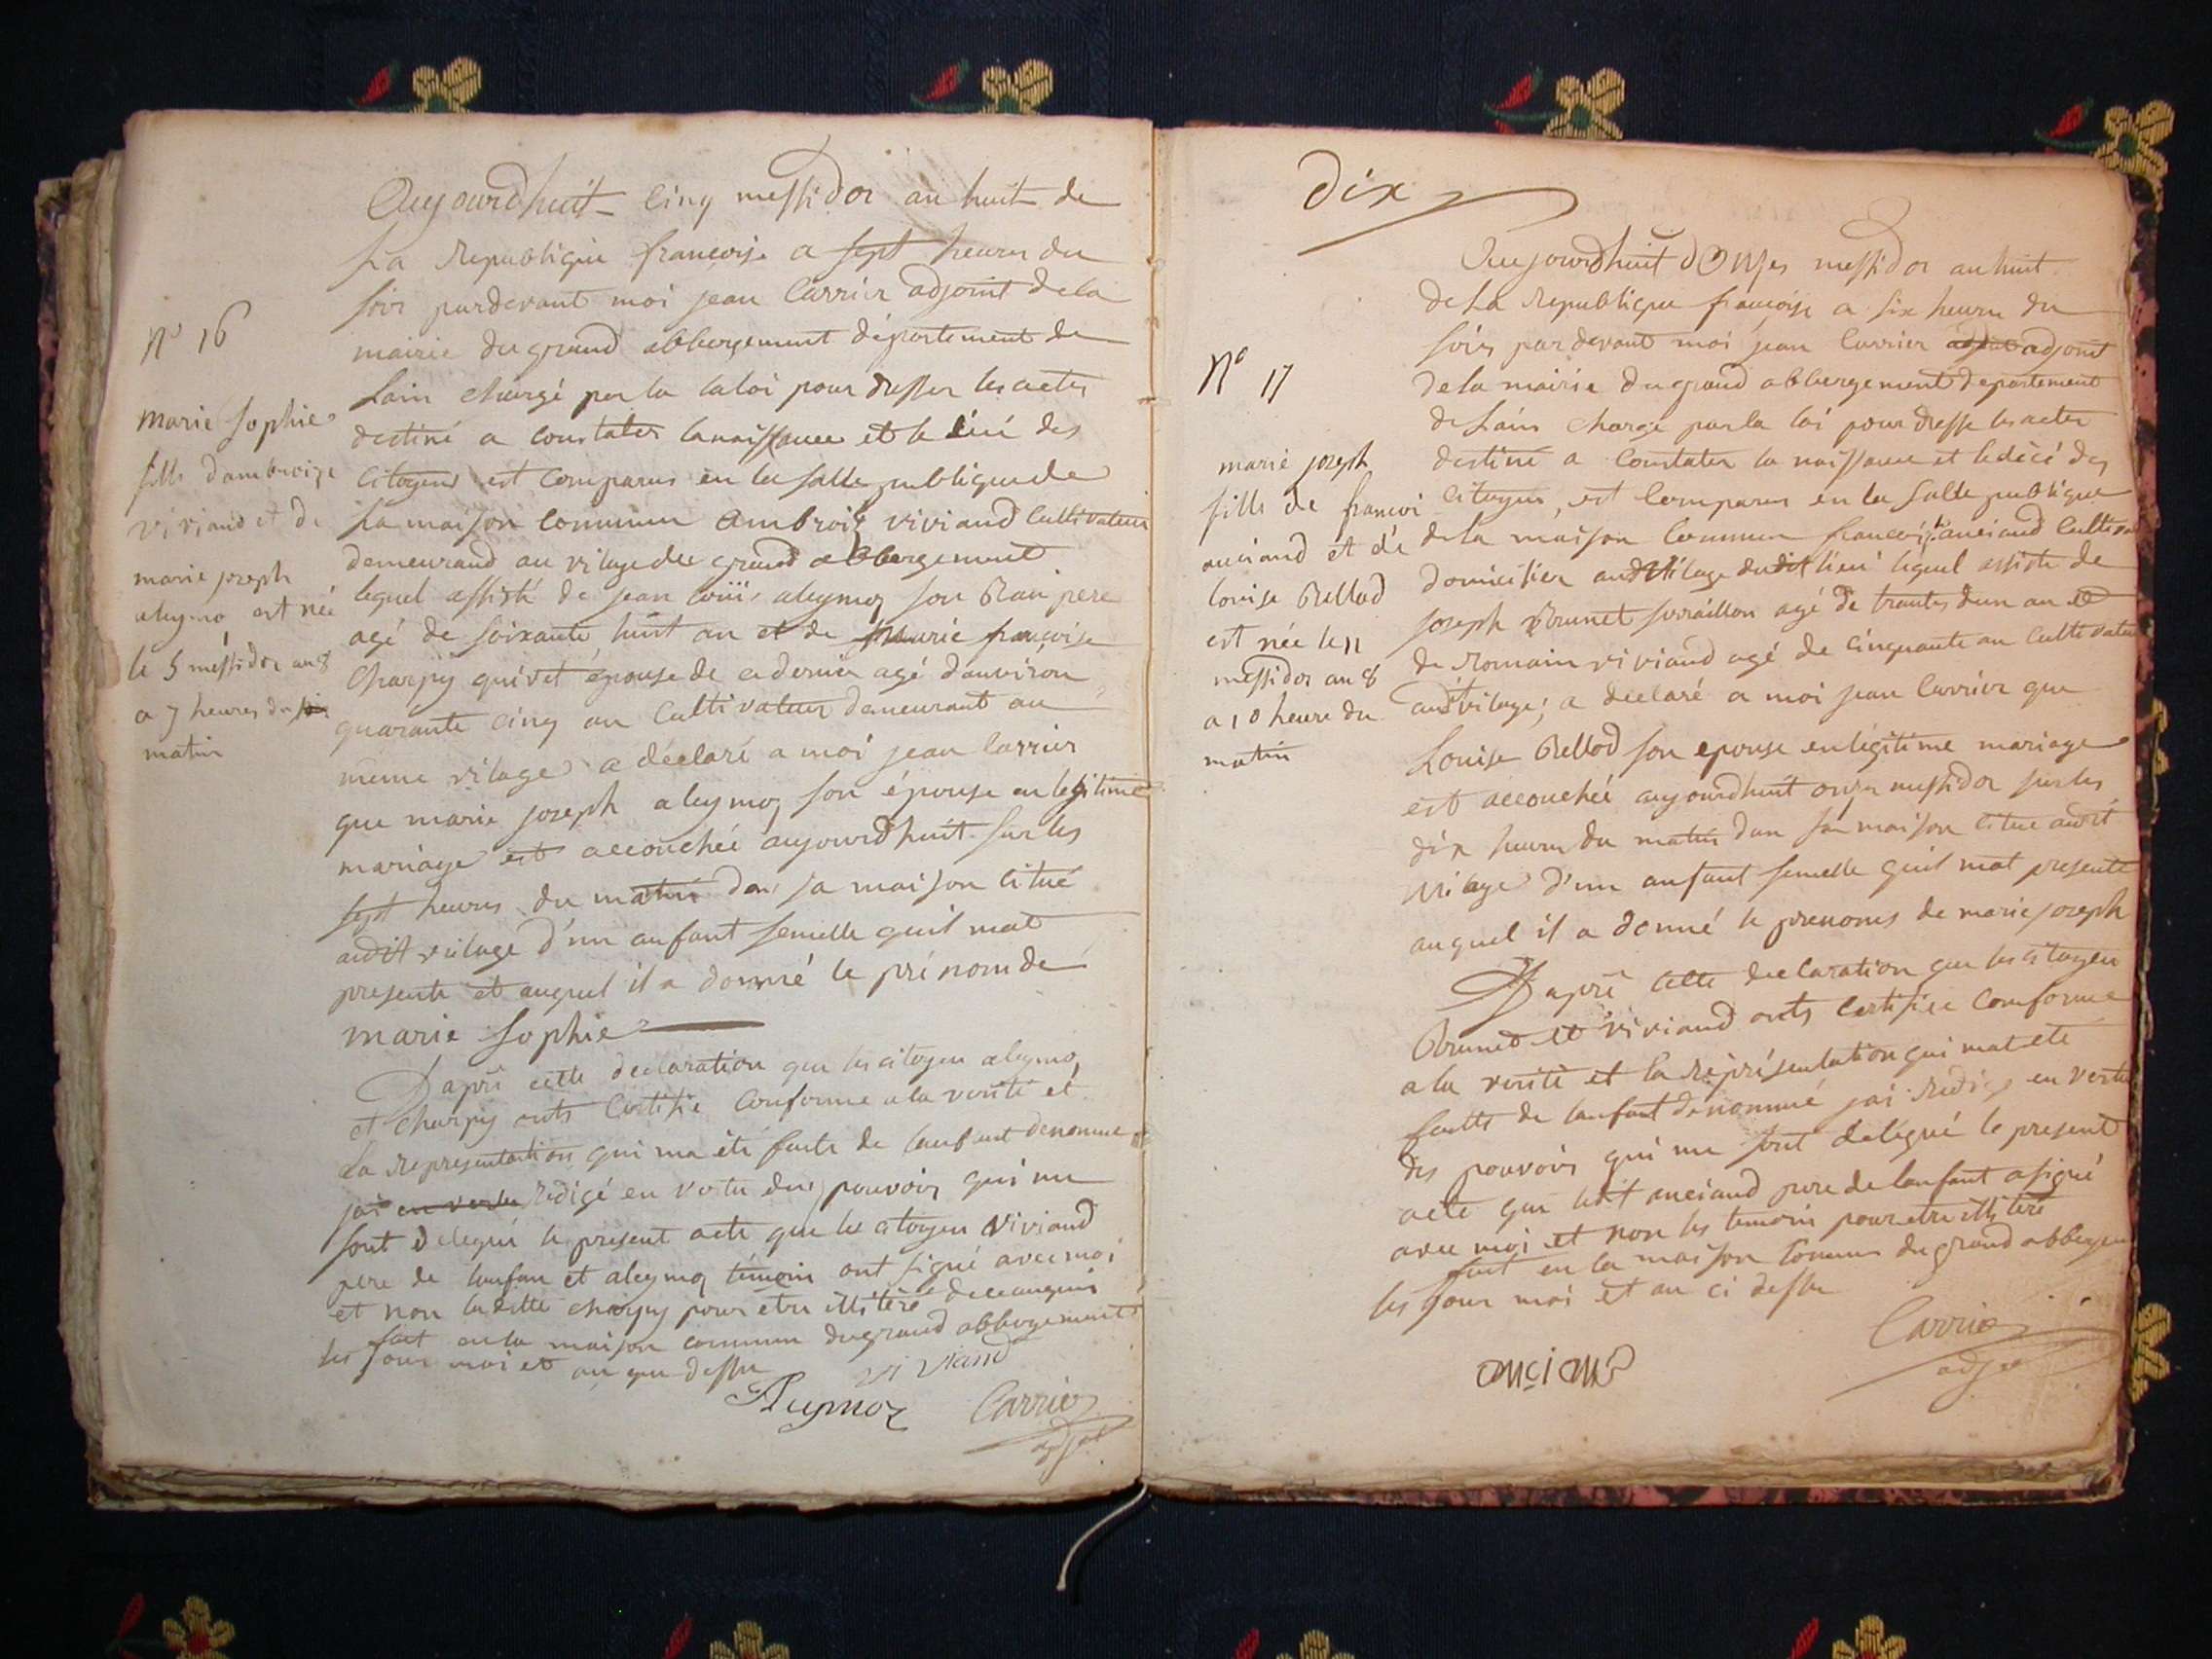 Nº 16
marie Sophie
fille dambroize
viviand et de
marie joseph
aleymo est née
le 5 messidor an 8
a 7 heures du
matin
Aujourdhuit Cinq messidor an huit de
La Republique françoise a sept heures du
soir pardevant moi jean Carrier adjoint de la
mairie du grand abbergement département de
Lain chargé par la laloi pour dresser les actes
destiné a constater la naissance et le des
Citoyens est comparus en la salle publique de
La maison commun ambroise viviand Cultivateur
demeurand au vilage du grand abbergement
lequel assisté de jean loüis aleymoz son Beau pere
agé de soixante huit an et de marie françoise
Charpy qui est épouse de ce dernier agé danviron
quarante cinq an Cultivateur demeurant au
meme vilage a déclaré a moi jean Carrier
que marie joseph aleymoz son épouse en legitime
mariage est accouchée aujourdhuit sur les
sept heures du matin dans sa maison Citué
audit vilage d'un anfant femelle quil mat
presenté et auquel il a donné le prénom de
marie Sophie
Daprï cette declaration que les citoyen aleymoz
et Charpy onts Certifié Conforme a la verité et
La representation qui ma été faite de lanfant denommé
jai en vertu redigé en vertu des pouvoir qui me
sont delegué le present acte que le citoyen Viviand
pere de lanfan et aleymoz témoin ont signé avec moi
et non ladite charpy pour etre illitere de ceanquis
fait en la maison commun du grand abbergement
les jour moi et an que dessu
viviand
Aleymoz Carrier
adjot
dix
Nº 17
marie joseph
fille de françoi
anciand et de
louise Bellod
est née le 11
messidor an 8
a 10 heure du
matin
Aujourdhuit dOnzes messidor an huit
de La Republique françoise a six heures du
soirs par devant moi jean Carrier adjoint
de la mairie du grand abbergement departement
de Lain chargé par la loi pour dresse les actes
destiné a Constater la naissance et le décé des
Citoyens, est Comparus en la salle publique
de la maison Commun françois anciand Cultivat
domicilier audit vilage dudit lieu lequel assisté de
joseph Brunet agé de trantes dun an et
de Romain viviand agé de Cinquante an Cultivateur
audit vilage; a declaré a moi jean Carrier que
Louise Bellod son epouse en légitime mariage
est accouchée aujourdhuit onze messidor sur les
dix heures du matin dan sa maison Citue audit
vilage d'un anfant femelle quil mat presenté
auquel il a donné le prenoms de marie joseph
Daprï cette declaration que les citoyen
Brunet et viviand onts Certifiée Comforme
a la verité et la représentation qui mat eté
faitte de lanfant denommé jai redigé en vertu
des pouvoir qui me sont delegué le present
acte que ledit anciand pere de lanfant a signé
avec moi et non les temoin pour etre illitere
fait en la maison Commun du grand abbergem
les jour moi et an ci dessu
Carrier
adjot
anciand